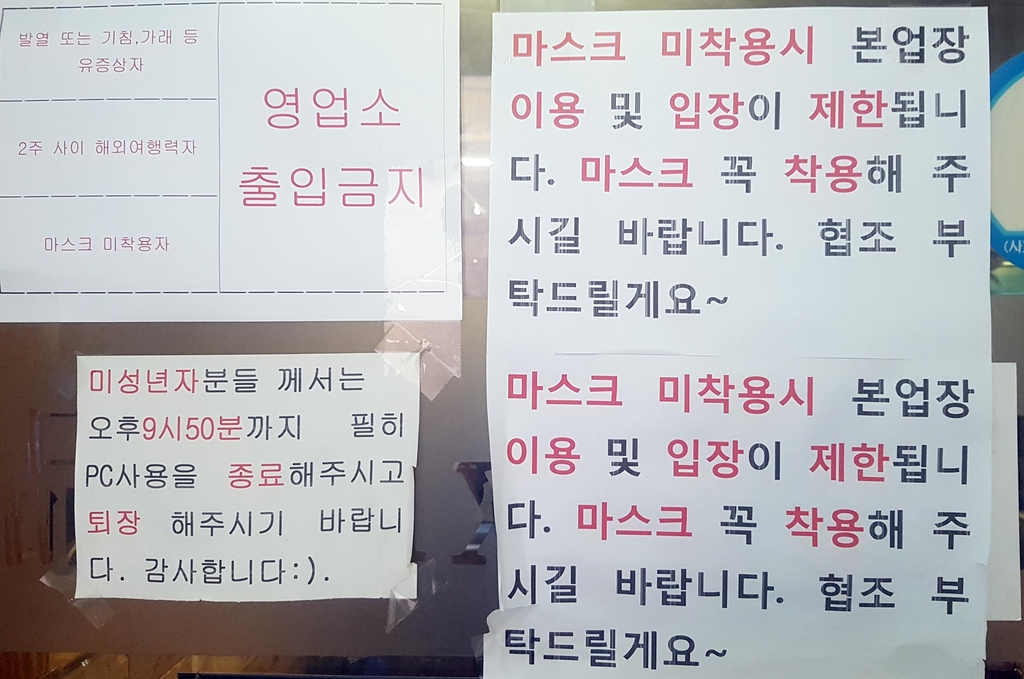 발열 또는 기침,가래 등
유증상자
2주 사이 해외여행력자
마스크 미착용자
영업소
출입금지
미성년자분들 께서는
오후9시50분까지 필히
PC사용을 종료해주시고
퇴장 해주시기 바랍니
다. 감사합니다:).
마스크 미착용시 본업장
이용 및 입장이 제한됩니
다. 마스크 꼭 착용해 주
시길 바랍니다. 협조 부
탁드릴게요~
마스크 미착용시 본업장
이용 및 입장이 제한됩니
다. 마스크 꼭 착용해 주
시길 바랍니다. 협조 부
탁드릴게요~